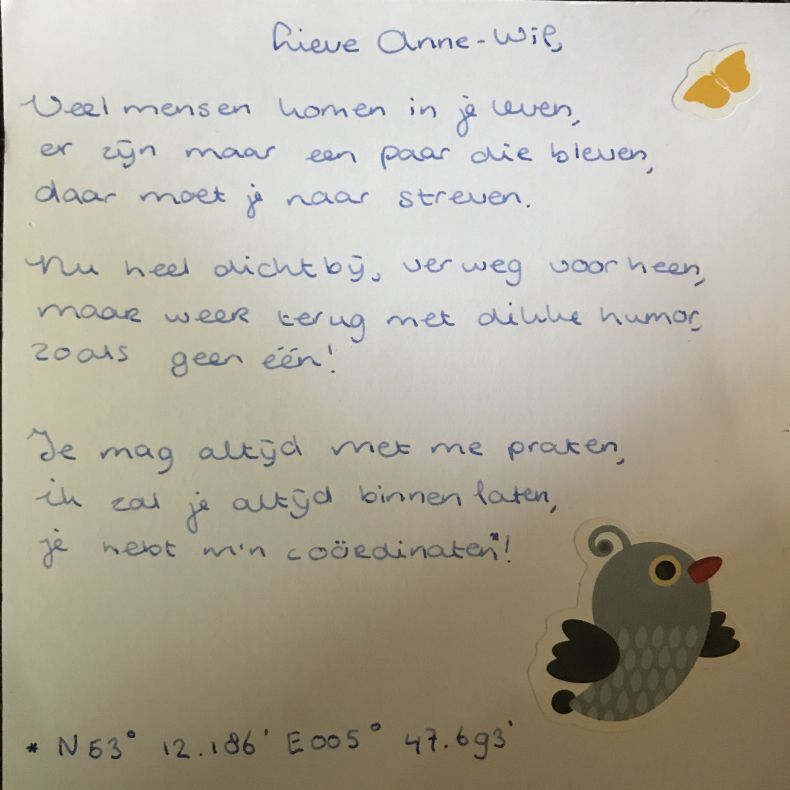 Lieve Anne-Wil,
Veel mensen komen in je leven,
er zijn maar een paar die bleven,
daar moet je naar streven.
Nu heel dichtbij, ver weg voorheen,
maar weer terug met dikke humor,
zoals geen één!
Je mag altijd met me praten,
ik zal je altijd binnen laten,
je hebt m'n coöerdinaten*!
* N53° 12.186' E005° 47.693'